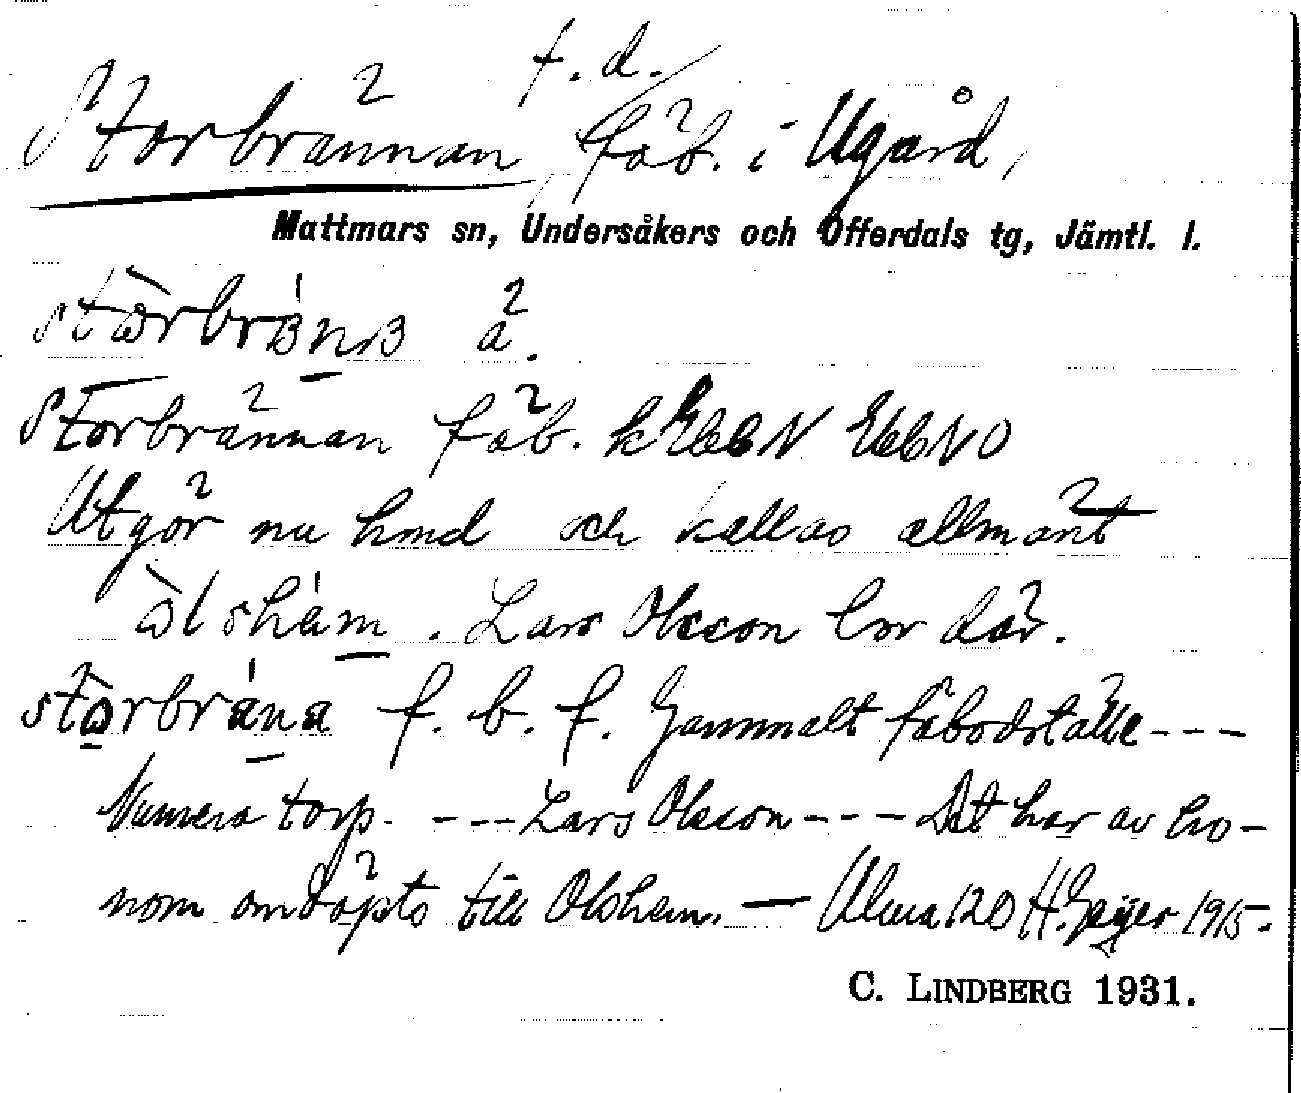 f.d.
Storbrännan fäb. i Ugård,
Mattmars sn, Undersåkers och Offerdals tg, Jämtl. l.
ä.
Storbrännan fäb.
Utgör nu hmd och kallas allmänt
òlshám. Lars Olsson bor där.
stòrbrána f. b. f. Gammalt fäbodställe ---
Numera torp. --- Lars Olsson --- Det har av ho-
nom omdöpts till Olshem. — Ulma 120 H. Geijer 1915.
C. LINDBERG 1931.